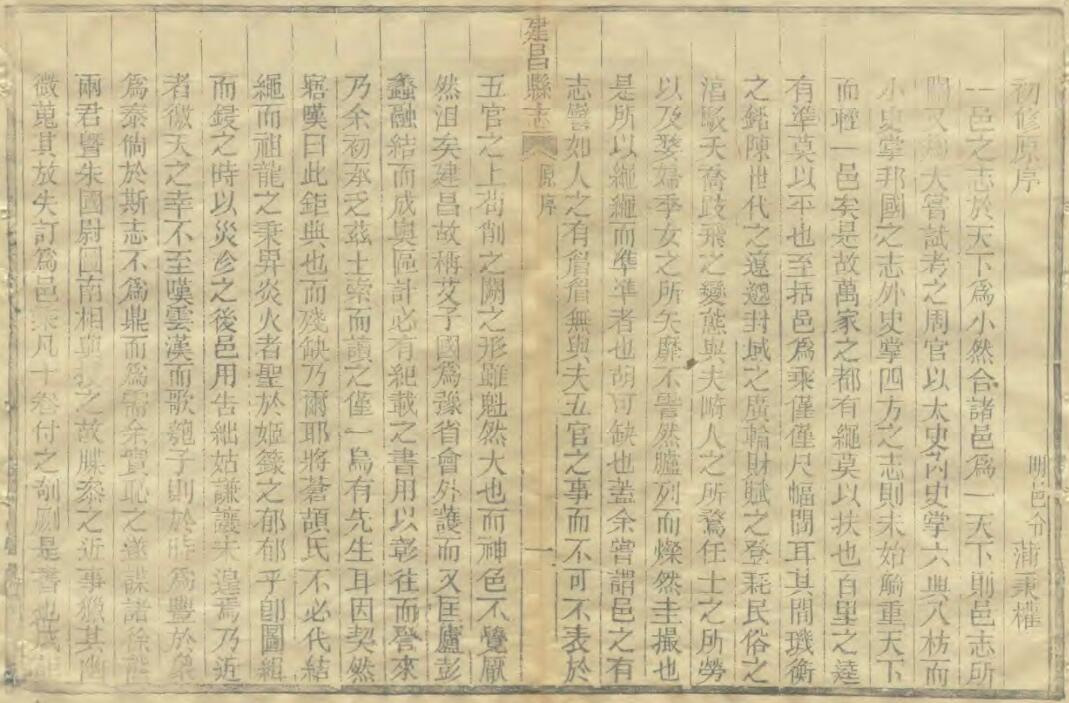 初修原序
明邑令 蒲秉權
一邑之志於天下爲小然合諸邑爲一天下則邑志所
關又大嘗試考之周官以太史內史掌六典八枋而
小史掌邦國之志外史掌四方之志則未始觭重天下
而輕一邑矣是故萬家之都有繩莫以扶也百里之逵
有準莫以平也至括邑爲乘僅僅尺幅間耳其間璣衡
之錯陳世代之遼邈封域之廣輪財賦之登耗民俗之
淳駁夭喬跂飛之變態與夫畸人之所騖任士之所勞
以及婺婦季女之所矢靡不訾然臚列而燦然圭撮也
是所以繩繩而準準者也胡可缺也蓋余嘗謂邑之有
志譬如人之有眉眉無與夫五官之事而不可不表於
建昌縣志 原序 一
五官之上苟削之闕之形雖魁然大也而神色不覺厭
然沮矣建昌故稱艾子國爲豫省會外護而又匡廬彭
蠡融結而成輿區計必有紀載之書用以彰往而詧來
乃余初承乏茲土索而讀之僅一烏有先生耳因契然
寤嘆曰此鉅典也而殘缺乃爾耶將蒼頡氏不必代結
繩而祖龍之秉畀炎火者聖於姬籙之郁郁乎卽圖緝
而鋟之時以災沴之後邑用告絀姑謙讓未遑焉乃近
者徼天之幸不至嘆雲漢而歌匏子則於時爲豐於象
爲泰倘於斯志不爲鼎而爲需余實恥之遂謀諸徐
兩君曁朱國尉圖南相與 之故牒叅之近事獵其幽
微蒐其放失訂爲邑乘凡十卷付之剞劂是書也